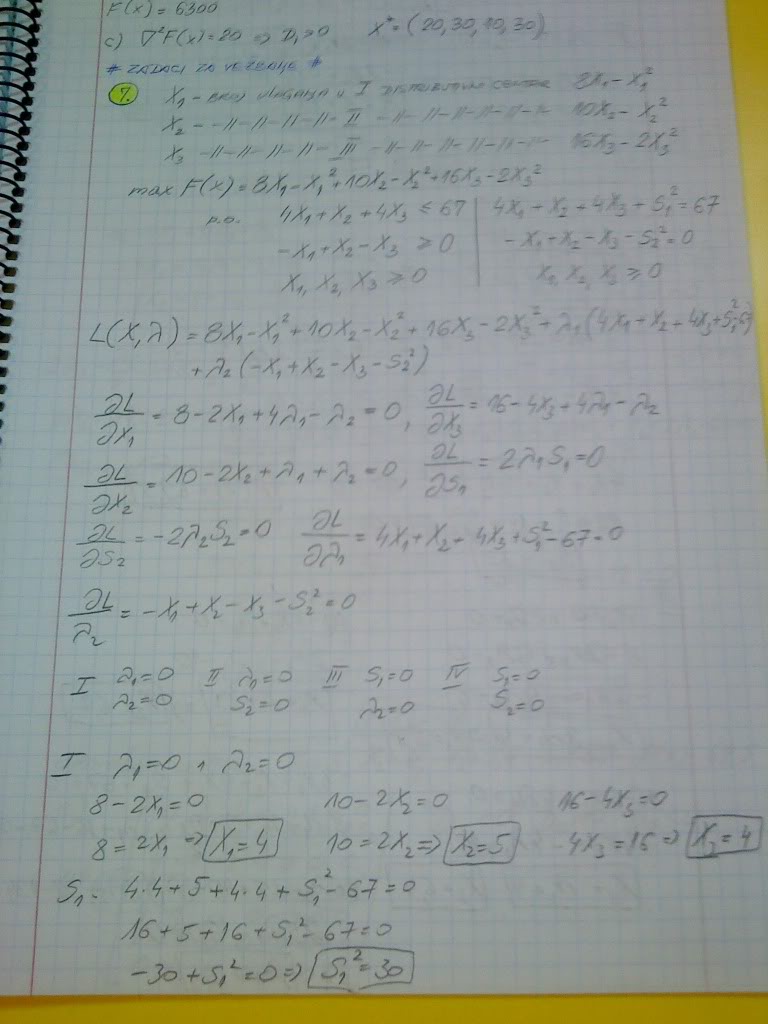 F(x) = 6300
c) ∇²F(x) = 20 ⇒ D₁ > 0 X* = (20, 30, 10, 30)
# ZADACI ZA VEŽBANJE #
7. X₁ - BROJ ULAGANJA U I DISTRIBUTIVNI CENTAR 8X₁ - X₁²
X₂ - -||-||-||-||- II -||-||-||-||- 10X₂ - X₂²
X₃ -||-||-||-||- III -||-||-||-||- 16X₃ - 2X₃²
max F(x) = 8X₁ - X₁² + 10X₂ - X₂² + 16X₃ - 2X₃²
p.o. 4X₁ + X₂ + 4X₃ ≤ 67 | 4X₁ + X₂ + 4X₃ + S₁² = 67
-X₁ + X₂ - X₃ ≥ 0 | -X₁ + X₂ - X₃ - S₂² = 0
X₁, X₂, X₃ ≥ 0 | X₁, X₂, X₃ ≥ 0
L(X, λ) = 8X₁ - X₁² + 10X₂ - X₂² + 16X₃ - 2X₃² + λ₁(4X₁ + X₂ + 4X₃ + S₁² - 67)
+ λ₂(-X₁ + X₂ - X₃ - S₂²)
∂L/∂X₁ = 8 - 2X₁ + 4λ₁ - λ₂ = 0, ∂L/∂X₃ = 16 - 4X₃ + 4λ₁ - λ₂
∂L/∂X₂ = 10 - 2X₂ + λ₁ + λ₂ = 0, ∂L/∂S₁ = 2λ₁S₁ = 0
∂L/∂S₂ = -2λ₂S₂ = 0 ∂L/∂λ₁ = 4X₁ + X₂ + 4X₃ + S₁² - 67 = 0
∂L/λ₂ = -X₁ + X₂ - X₃ - S₂² = 0
I λ₁=0 II λ₁=0 III S₁=0 IV S₁=0
λ₂=0 S₂=0 λ₂=0 S₂=0
I λ₁=0 1 λ₂=0
8 - 2X₁ = 0 10 - 2X₂ = 0 16 - 4X₃ = 0
8 = 2X₁ ⇒ X₁ = 4 10 = 2X₂ ⇒ X₂ = 5 4X₃ = 16 ⇒ X₃ = 4
S₁ - 4·4 + 5 + 4·4 + S₁² - 67 = 0
16 + 5 + 16 + S₁² - 67 = 0
-30 + S₁² = 0 ⇒ S₁² = 30